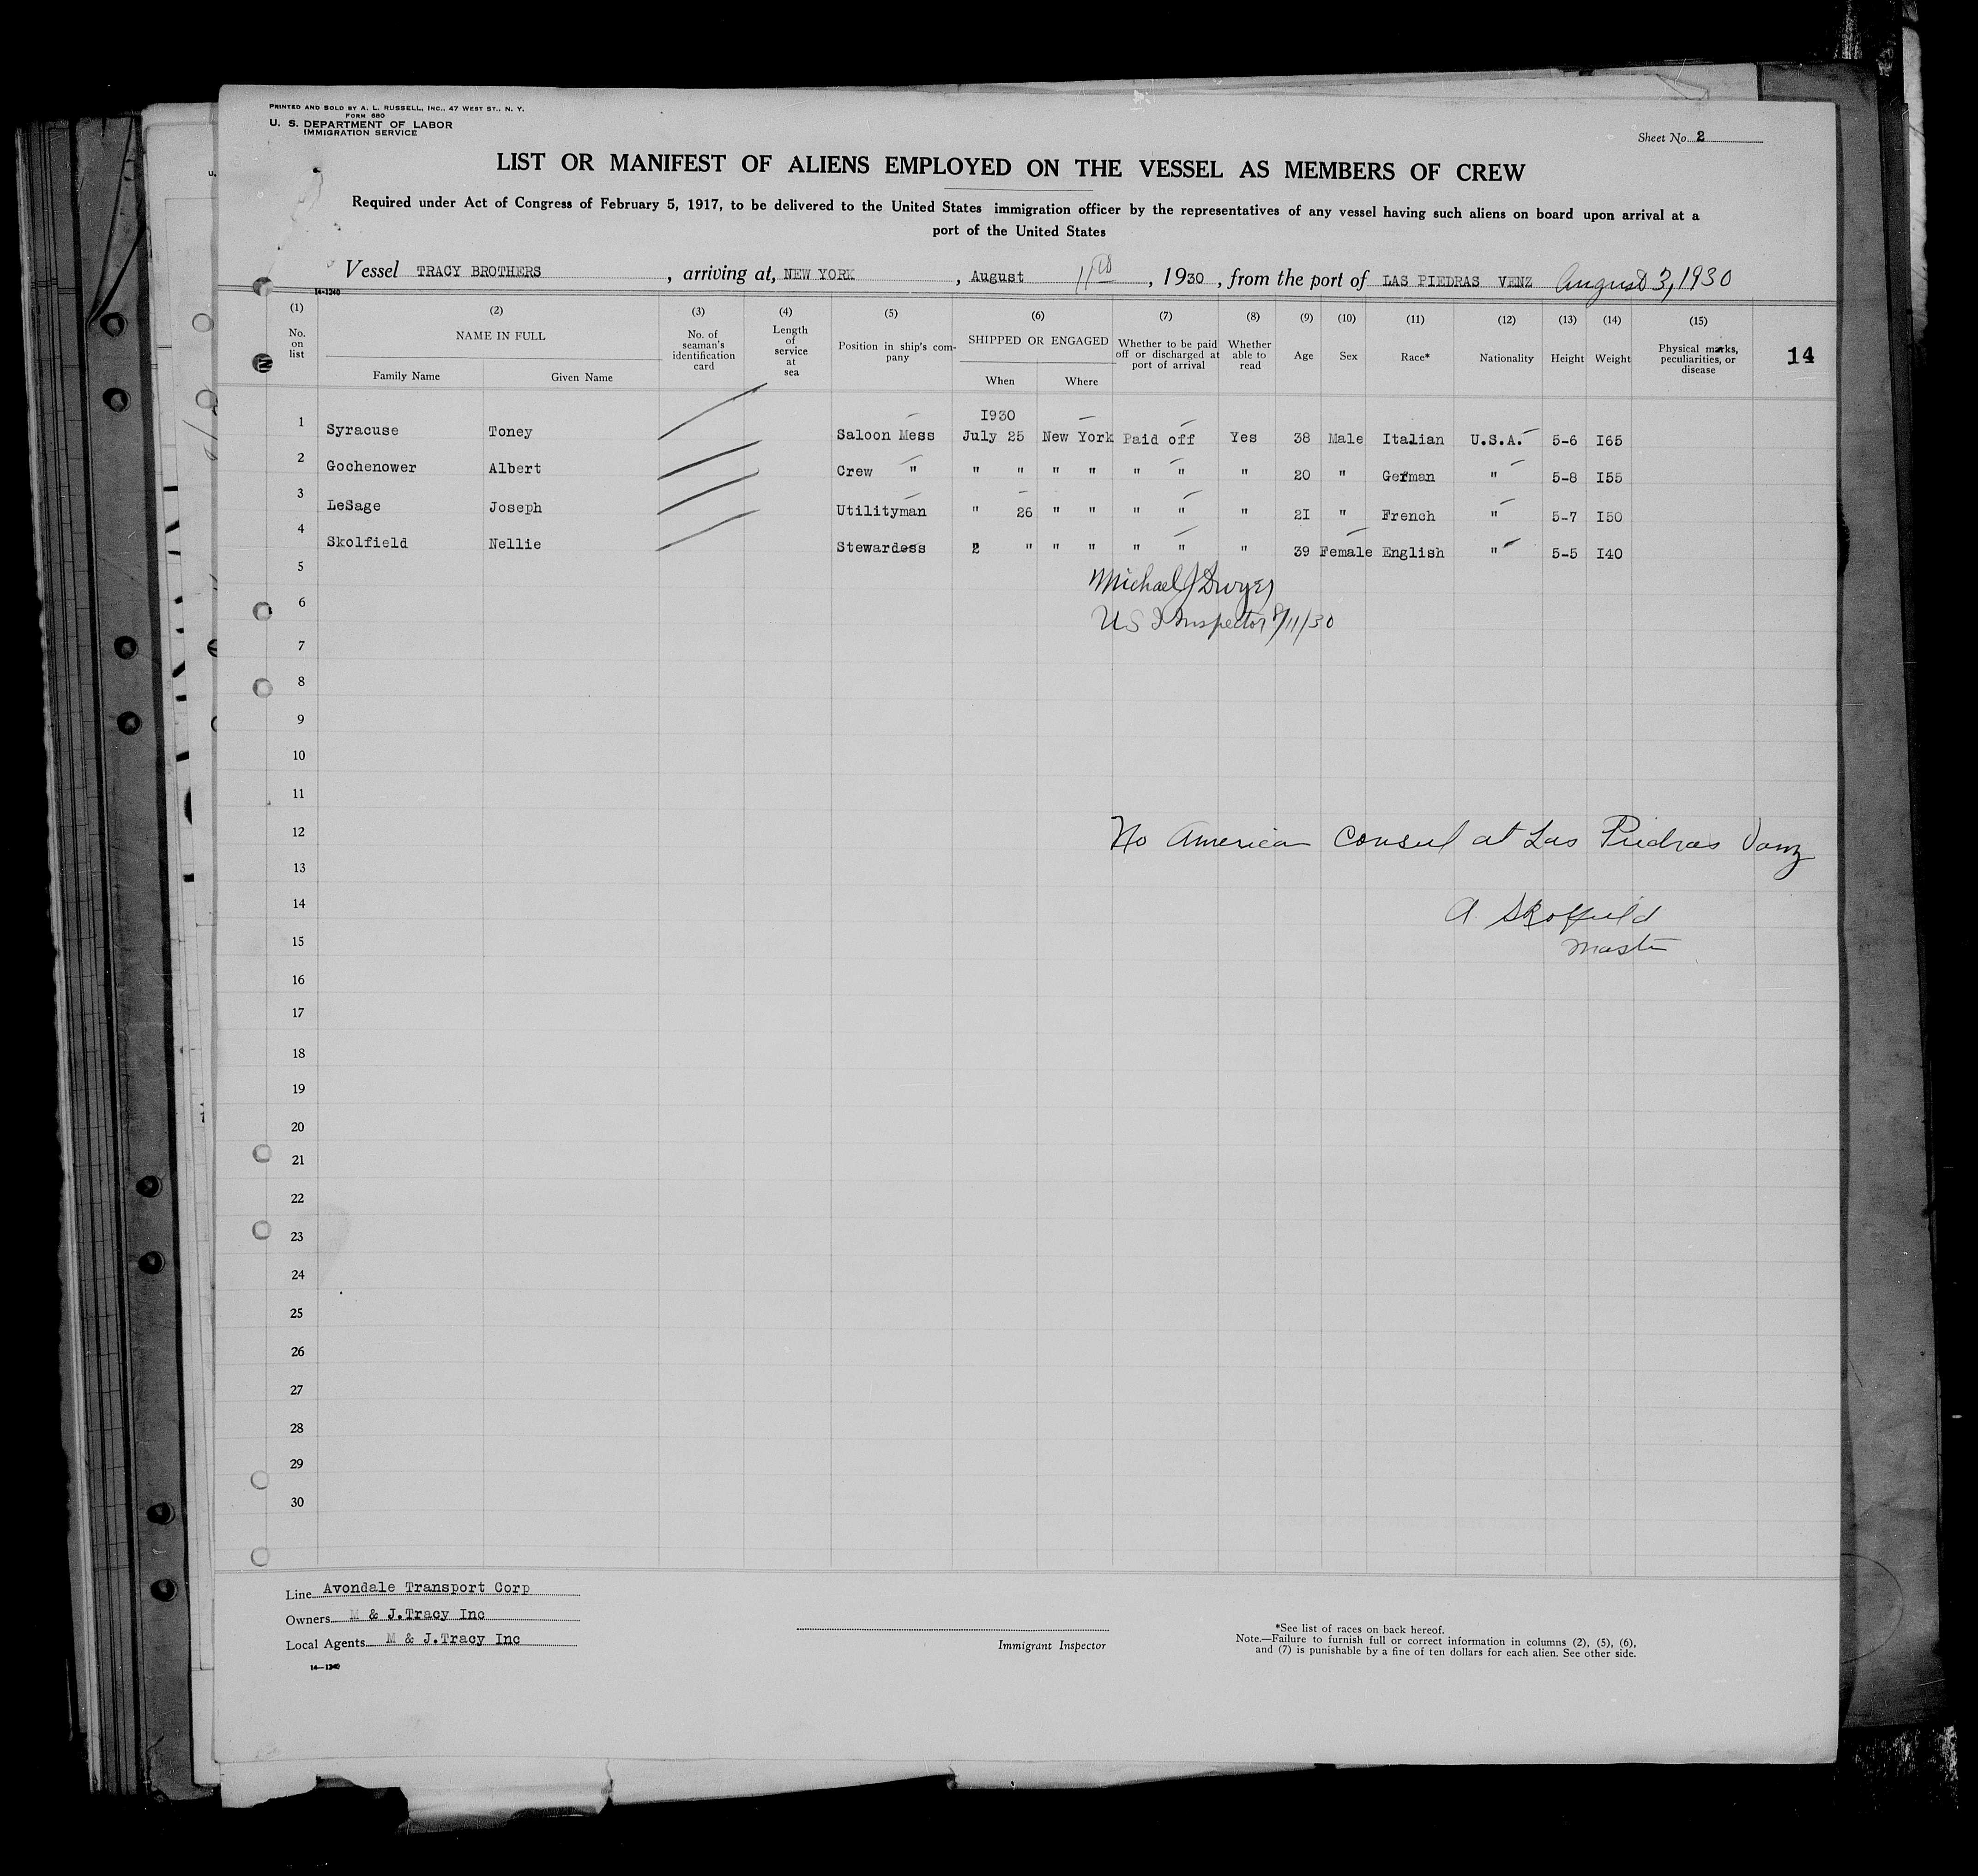 PRINTED AND SOLD BY A. L. RUSSELL, INC., 47 WEST ST., N. Y.
FORM 680
U. S. DEPARTMENT OF LABOR
IMMIGRATION SERVICE
Sheet No. 2
LIST OR MANIFEST OF ALIENS EMPLOYED ON THE VESSEL AS MEMBERS OF CREW
Required under Act of Congress of February 5, 1917, to be delivered to the United States immigration officer by the representatives of any vessel having such aliens on board upon arrival at a
port of the United States
Vessel TRACY BROTHERS, arriving at, NEW YORK, August 11th, 1930, from the port of LAS PIEDRAS VENZ August 3, 1930
14-1240
(1) No. on list
(2) NAME IN FULL
Family Name Given Name
(3) No. of seaman's identification card
(4) Length of service at sea
(5) Position in ship's company
(6) SHIPPED OR ENGAGED
When Where
(7) Whether to be paid off or discharged at port of arrival
(8) Whether able to read
(9) Age
(10) Sex
(11) Race*
(12) Nationality
(13) Height
(14) Weight
(15) Physical marks, peculiarities, or disease
14
I930
1 Syracuse Toney Saloon Mess July 25 New York Paid off Yes 38 Male Italian U.S.A. 5-6 I65
2 Gochenower Albert Crew " " " " " " " " 20 " German " 5-8 I55
3 LeSage Joseph Utilityman " 26 " " " " " 2I " French " 5-7 I50
4 Skolfield Nellie Stewardess 2 " " " " " " 39 Female English " 5-5 I40
5
Michael J Dwyer
6
US I Inspector 8/11/30
7
8
9
10
11
12
No American Consul at Las Piedras Vanz
13
14
A. Skolfield
15
Master
16
17
18
19
20
21
22
23
24
25
26
27
28
29
30
Line Avondale Transport Corp
Owners M & J.Tracy Inc
Local Agents M & J.Tracy Inc
14-1240
Immigrant Inspector
*See list of races on back hereof.
Note.—Failure to furnish full or correct information in columns (2), (5), (6),
and (7) is punishable by a fine of ten dollars for each alien. See other side.